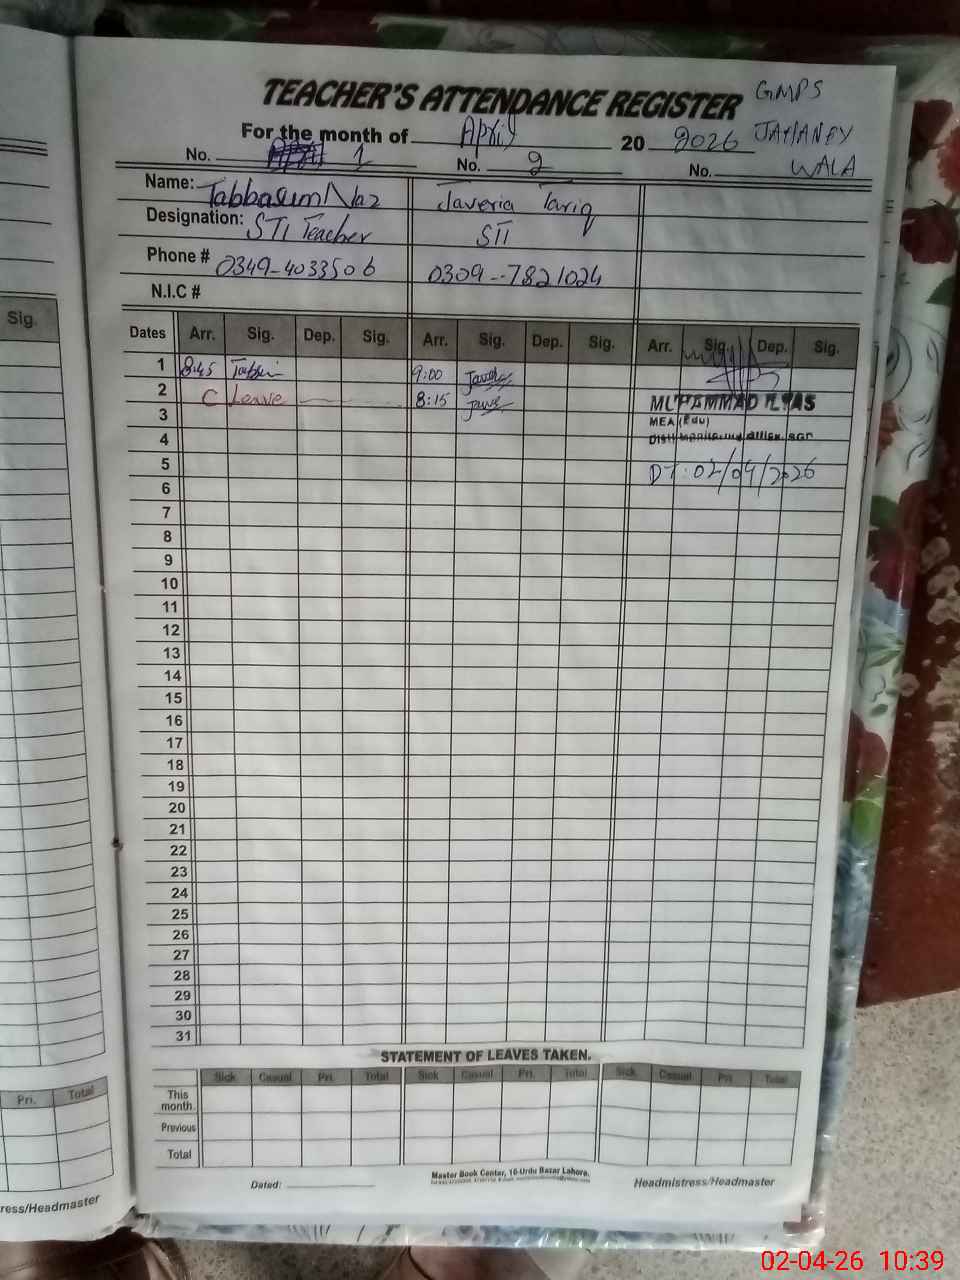 TEACHER'S ATTENDANCE REGISTER GMPS
For the month of April 20 2026 JATIANEY
No. 1 No. 2 No. WALA
Name: Tabbasum Naz Javeria Tariq
Designation: STI Teacher STI
Phone # 0349-4033506 0309--7821024
N.I.C #
Sig.
Dates Arr. Sig. Dep. Sig. Arr. Sig. Dep. Sig. Arr. Sig. Dep. Sig.
1 8:45 9:00
2 C Leave 8:15
MUHAMMAD ILYAS
3
MEA (Edu)
4
5
DT: 02/04/2026
6
7
8
9
10
11
12
13
14
15
16
17
18
19
20
21
22
23
24
25
26
27
28
29
30
31
STATEMENT OF LEAVES TAKEN.
Sick Casual Pri. Total Sick Casual Pri. Total Sick Casual Pri. Total
Pri. Total
This month.
Previous
Total
Dated:
Master Book Center, 16-Urdu Bazar Lahore.
Headmistress/Headmaster
ress/Headmaster
02-04-26 10:39